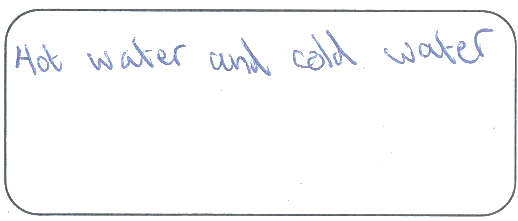 Hot water and cold water